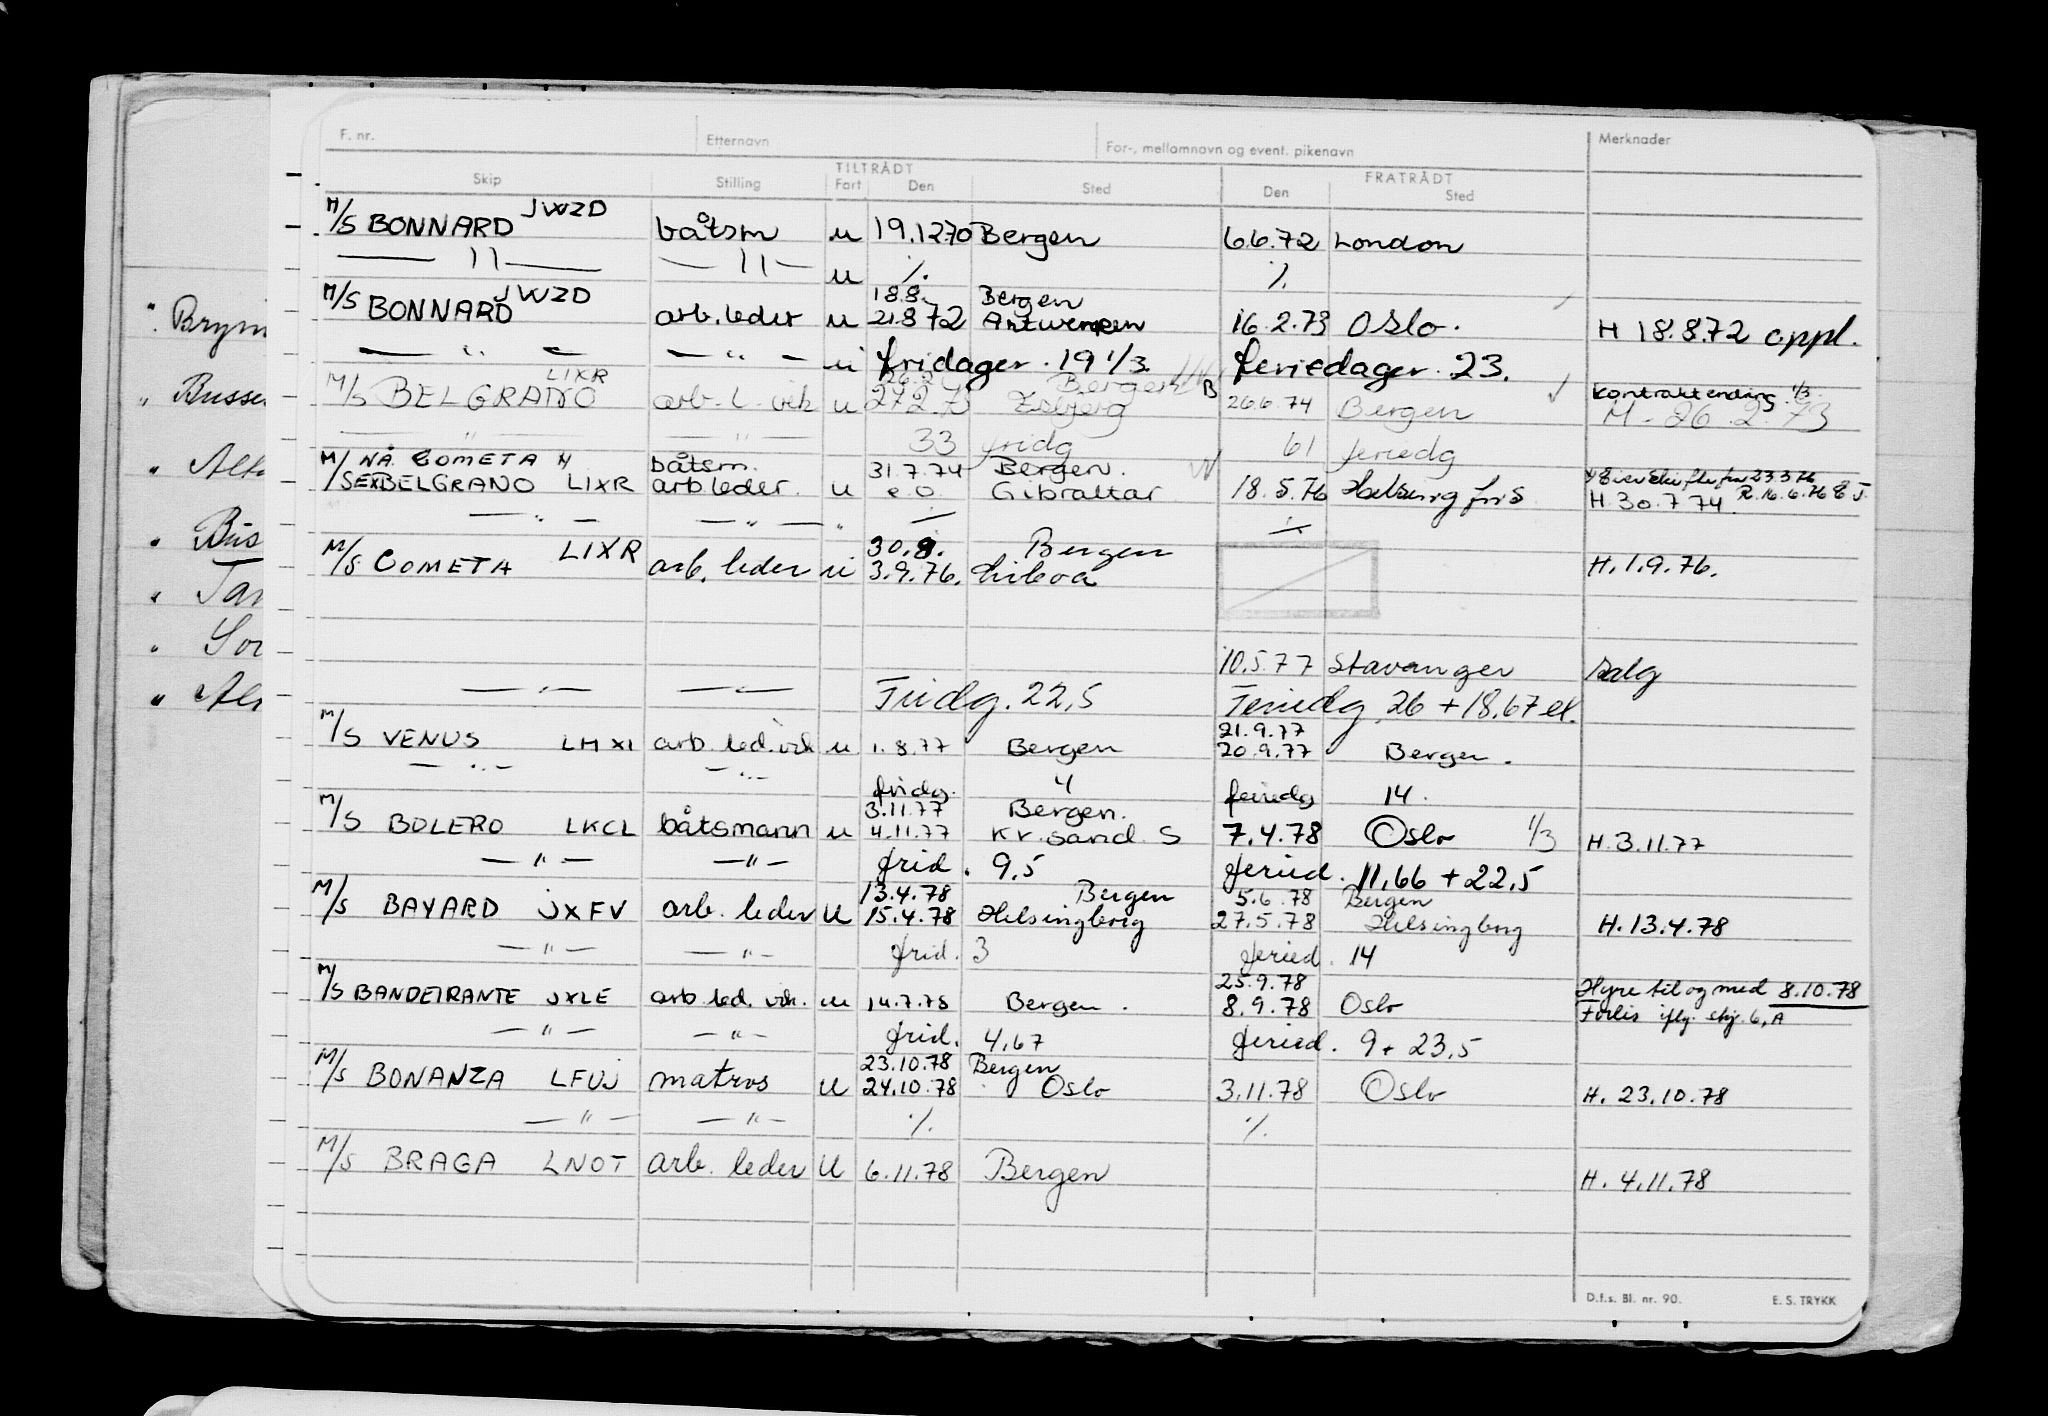 F. nr. Etternavn For-, mellomnavn og event. pikenavn Merknader
TILTRÅDT FRATRÅDT
Skip Stilling Fart Den Sted Den Sted
M/S BONNARD JWZD båtsm u 19.1270 Bergen 6.6.72 London
— 11 — — 11 — u % %
18.8. Bergen
M/S BONNARD JWZD arb.leder u 21.872 Antwerpen 16.2.73 Oslo. H 18.8.72 oppl.
— " — — " — u fridager. 19 1/3. feriedager. 23.
LIXR 26.2 Bergen kontraktendring 1/3.
M/S BELGRANO arb. l. vik u 27.2.73 Esbjerg B 26.6.74 Bergen M - 26.2.73
— " — — " — 33 fridg 61 feriedg
M/ NÅ COMETA H båtsm. 31.7.74 Bergen.
/S EX BELGRANO LIXR arbleder. u e.o. Gibraltar 18.5.76 H. 30.7.74. R. 16.6.76
— " — — " — " % %
30.8. Bergen
M/S COMETA LIXR arb. leder u 3.9.76. H. 1.9.76.
10.5.77 Stavanger salg
— " — — " — Fridg. 22,5 Feriedg. 26 + 18,67 el.
21.9.77
M/S VENUS LMXI arb. led. vik u 1.8.77 Bergen 20.9.77 Bergen.
— " — — " — fridg. 4 feriedg 14.
3.11.77 Bergen.
M/S BOLERO LKCL båtsmann u 4.11.77 Kr. sand. S 7.4.78 Oslo 1/3 H. 3.11.77
— " — — " — frid. 9,5 feried. 11,66 + 22,5
13.4.78 Bergen 5.6.78 Bergen
M/S BAYARD JXFV arb. leder u 15.4.78 Helsingborg 27.5.78 Helsingborg H. 13.4.78
— " — — " — frid. 3 feried. 14
25.9.78 Hyre til og med 8.10.78
M/S BANDEIRANTE JXLE arb. led. vik. u 14.7.78 Bergen. 8.9.78 Oslo Forlis iflg. skj. 6, A
— " — — " — frid. 4,67 feried. 9 + 23,5
23.10.78 Bergen
M/S BONANZA LFUJ matros u 24.10.78 Oslo 3.11.78 Oslo H. 23.10.78
— " — — " — % %
M/S BRAGA LNOT arb. leder u 6.11.78 Bergen H. 4.11.78
D.f.s. Bl. nr. 90. E. S. TRYKK